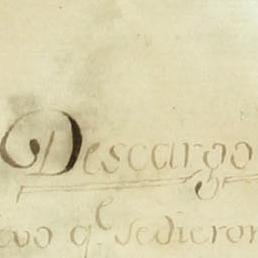 Descargo
q.^e se dieron